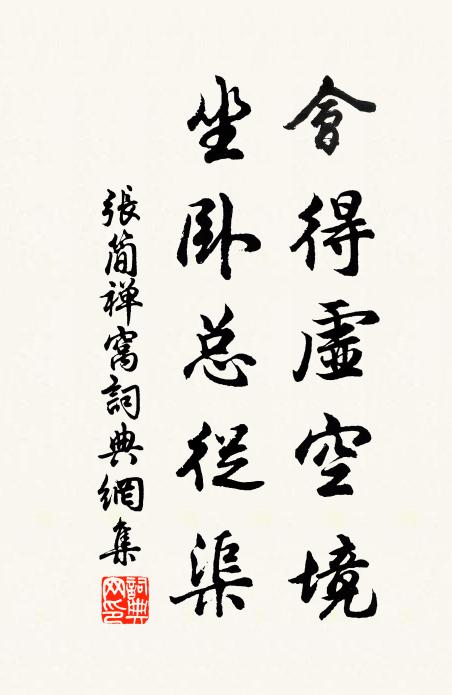 會得虛空境
坐卧总從渠
張简禅窩詞典網集
詞典网印